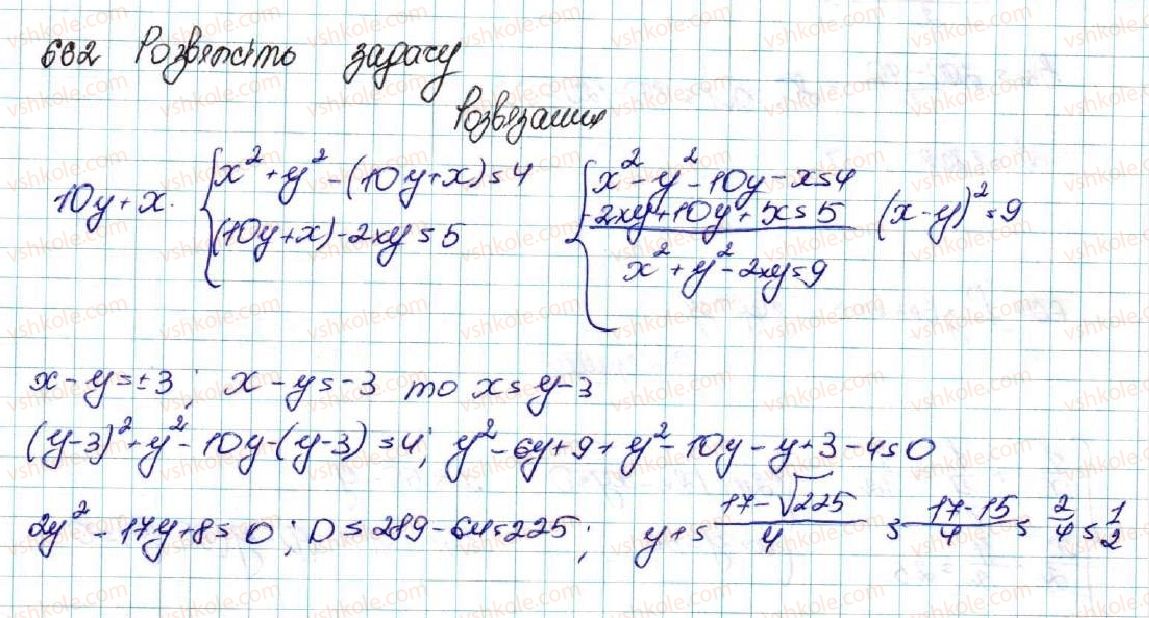 602 Розв'яжіть задачу
Розв'язання
10y+x. { x²+y²-(10y+x)=4 { x²-y²-10y-x=4
(10y+x)-2xy=5 -2xy+10y+x=5 (x-y)²=9
x²+y²-2xy=9
x-y=±3; x-y=-3 то x=y-3
(y-3)²+y²-10y-(y-3)=4; y²-6y+9+y²-10y-y+3-4=0
2y²-17y+8=0; D=289-64=225; y₁=(17-√225)/4=(17-15)/4=2/4=1/2